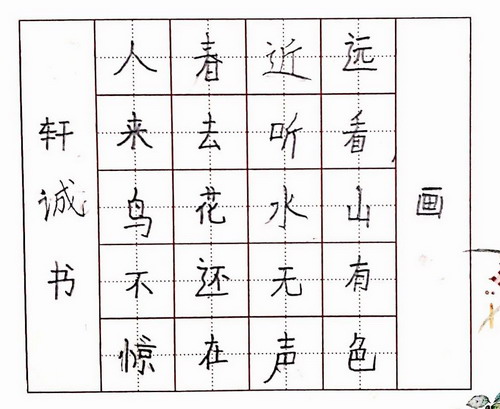 画
远看山有色
近听水无声
春去花还在
人来鸟不惊
轩诚书